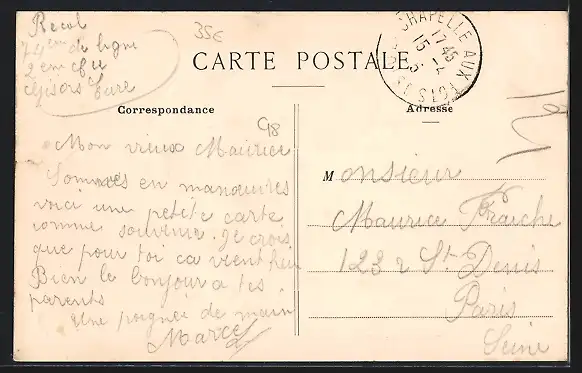 35€
Recol
74em de ligne
2em Cie
Gisors Eure
CARTE POSTALE
CHAPELLE AUX POTS
17 45
15 - 2
OISE
Correspondance
Adresse
98
Mon vieux Maurice
Sommes en manœuvres
voici une petite carte
comme souvenir. Je crois
que pour toi ca vient
Bien le bonjour a tes
parents
Une poignée de main
Marcel
Monsieur
Maurice Fraiche
123 r St-Denis
Paris
Seine